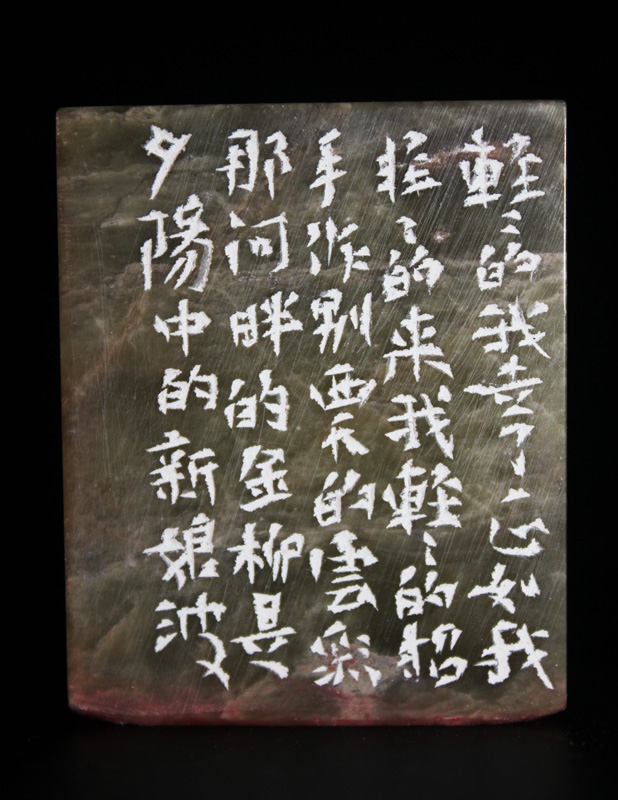 輕〻的我走了正如我
輕〻的来我輕〻的招
手作别西天的雲彩
那河畔的金柳是
夕陽中的新娘波